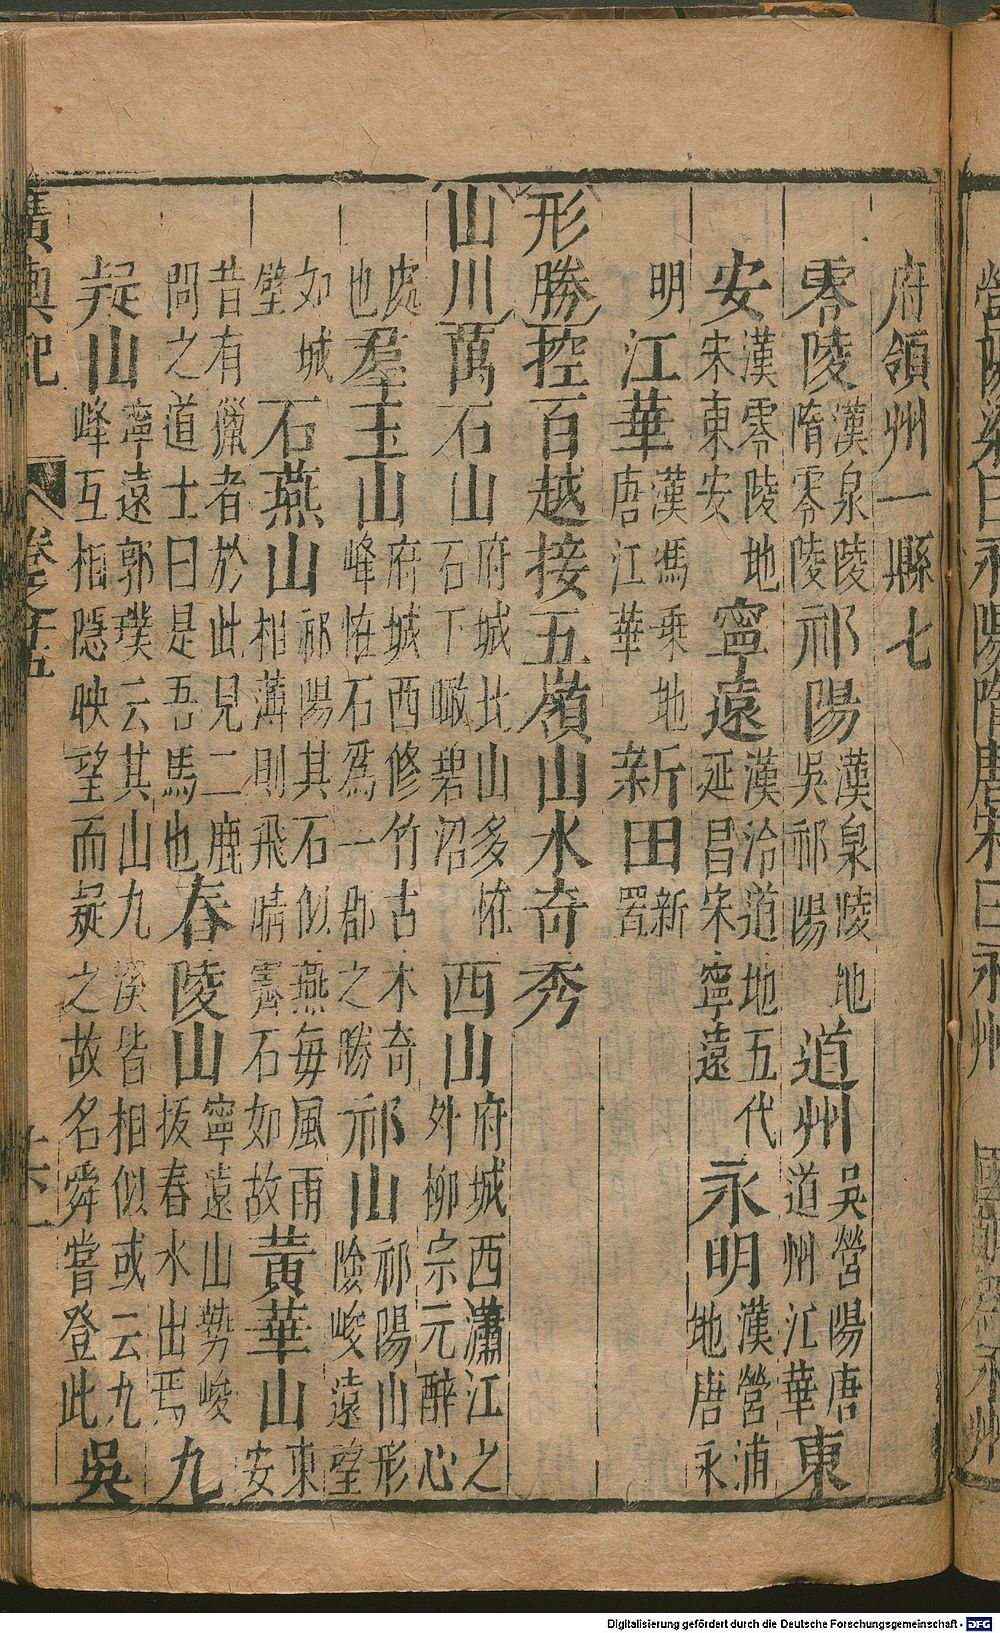 府領州一縣七
零陵漢泉陵隋零陵祁陽漢泉陵地吳祁陽道州吳營陽唐道州江華東
安漢零陵地宋東安寧遠漢泠道地五代延昌宋寧遠永明漢營浦地唐永
明江華漢馮乗地唐江華新田新置
形勝控百越接五嶺山水奇秀
山川萬石山府城北山多怪石下瞰碧沼西山府城西瀟江之外柳宗元醉心
處也羣玉山府城西修竹古木奇峰怪石爲一郡之勝祁山祁陽山形險峻遠望
如城壁石燕山祁陽其石似燕每風雨相薄則飛晴霽石如故黃華山東安
昔有獵者於此見二鹿問之道士曰是吾馬也春陵山寧遠山勢峻拔春水出焉九
疑山寧遠郭璞云其山九溪皆相似或云九峰互相隱映望而疑之故名舜嘗登此吳
廣輿記
卷之十五
Digitalisierung gefördert durch die Deutsche Forschungsgemeinschaft - DFG